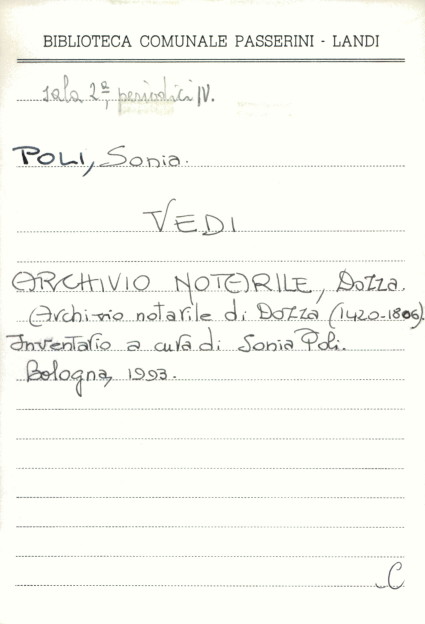 BIBLIOTECA COMUNALE PASSERINI - LANDI
sala 2ª, periodici IV.
POLI, Sonia.
VEDI
ARCHIVIO NOTARILE, Dozza.
Archivio notarile di Dozza (1420-1806).
Inventario a cura di Sonia Poli.
Bologna, 1993.
C